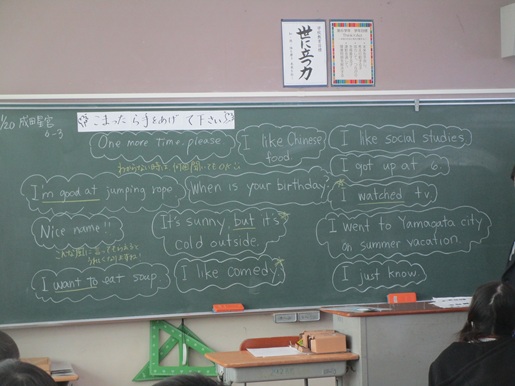 世に立つ力
1/20
6-3
こまったら手をあげて下さい
One more time, please.
I like Chinese
food.
I like social studies.
I got up at 6.
I'm good at jumping rope
When is your birthday
I watched tv.
Nice name!!
It's sunny but it's
cold outside.
I went to Yamagata city
on summer vacation.
I want to eat soup.
I like comedy
I just know.